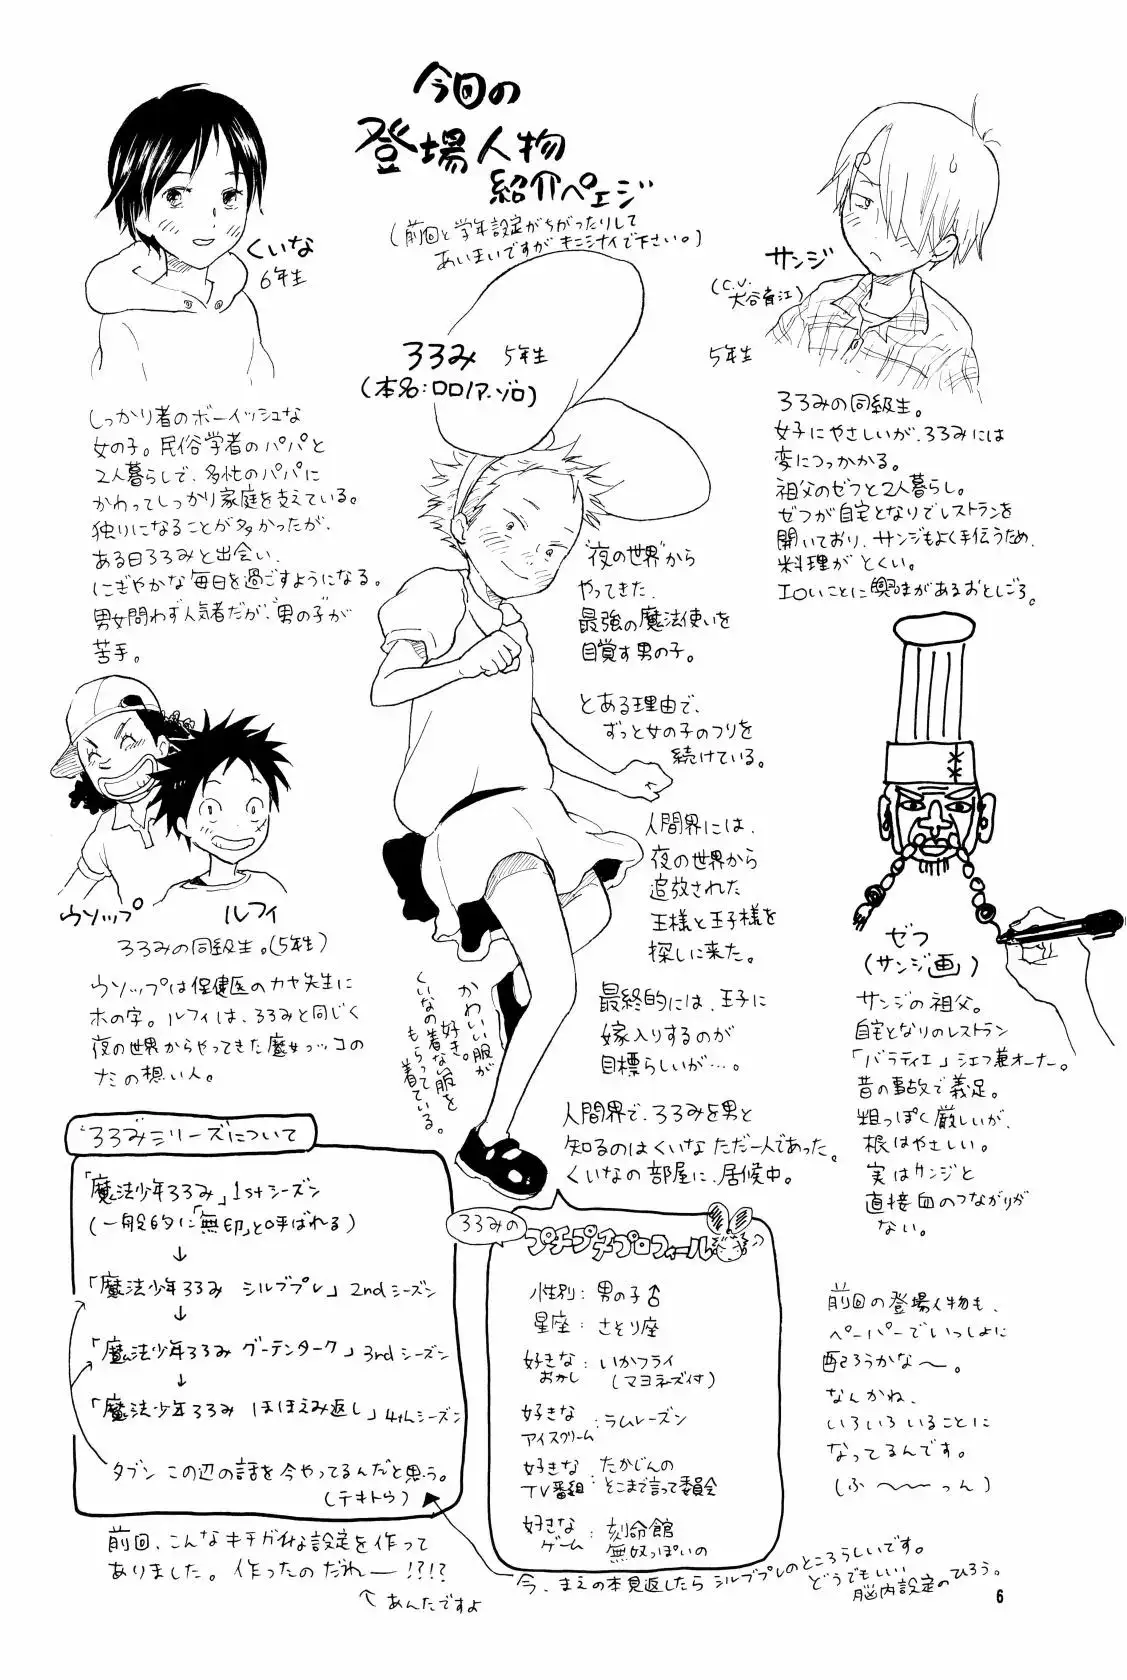 今回の
登場人物
紹介ペェジ
(前回と学年設定がちがったりして
あいまいですがキニシナイで下さい。)
くいな
6年生
しっかり者のボーイッシュな
女の子。民俗学者のパパと
2人暮らしで、多忙のパパに
かわってしっかり家庭を支えている。
独りになることが多かったが、
ある日ろろみと出会い、
にぎやかな毎日を過ごすようになる。
男女問わず人気者だが、"男の子"が
苦手。
ろろみ 5年生
(本名:ロロノア・ゾロ)
"夜の世界"から
やってきた、
最強の魔法使いを
目覚す男の子。
とある理由で、
ずっと女の子のフリを
続けている。
人間界には、
夜の世界から
追放された
王様と王子様を
探しに来た。
最終的には、王子に
嫁入りするのが
目標らしいが…。
人間界で、ろろみを男と
知るのはくいなただ一人であった。
くいなの部屋に、居候中。
かわいい服が
好き。
くいなの着ない服を
もらって
着ている。
サンジ
(C.V.
大谷育江)
5年生
ろろみの同級生。
女子にやさしいが、ろろみには
変につっかかる。
祖父のゼフと2人暮らし。
ゼフが自宅となりでレストランを
開いており、サンジもよく手伝うため、
料理がとくい。
エロいことに興味があるおとしごろ。
ウソップ
ルフィ
ろろみの同級生。(5年生)
ウソップは保健医のカヤ先生に
ホの字。ルフィは、ろろみと同じく
夜の世界からやってきた魔女っコの
たの想い人。
ゼフ
(サンジ画)
サンジの祖父。
自宅となりのレストラン
「バラティエ」シェフ兼オーナー。
昔の事故で義足。
粗っぽく厳しいが、
根はやさしい。
実はサンジと
直接血のつながりが
ない。
"ろろみシリーズ"について
「魔法少年ろろみ」1stシーズン
(一般的に「無印」と呼ばれる)
↓
「魔法少年ろろみ シルブプレ」2ndシーズン
↓
「魔法少年ろろみ グーテンターク」3rdシーズン
↓
「魔法少年ろろみ ほほえみ返し」4thシーズン
タブン この辺の話を今やってるんだと思う。
(テキトウ)
前回、こんなキチガイな設定を作って
ありました。作ったのだれー!?!?
↑あんたですよ
ろろみの
プチプチプロフィール
性別:男の子♂
星座:さそり座
好きなおかし:いかフライ
(マヨネーズ付)
好きなアイスクリーム:ラムレーズン
好きなTV番組:たかじんの
そこまで言って委員会
好きなゲーム:刻命館
無奴っぽいの
今、まえの本見返したらシルブプレのところらしいです。
どうでもいい
脳内設定のひろう。
前回の登場人物も、
ペーパーでいっしょに
配ろうかな〜。
なんかね、
いろいろいることに
なってるんです。
(ふ〜〜っん)
6